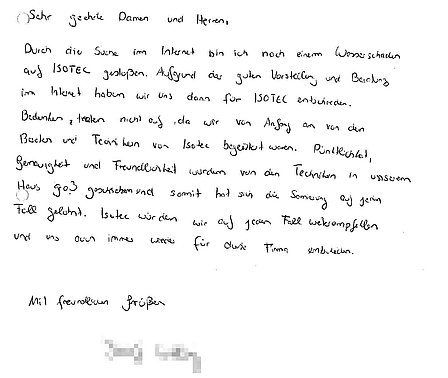 Sehr geehrte Damen und Herren,
Durch die Suche im Internet bin ich nach einem Wasserschaden
auf ISOTEC gestoßen. Aufgrund der guten Vorstellung und Beratung
im Internet haben wir uns dann für ISOTEC entschieden.
Bedenken, traten nicht auf, da wir von Anfang an von den
Beratern und Technikern von Isotec begeistert waren. Pünktlichkeit,
Genauigkeit und Freundlichkeit wurden von den Technikern in unserem
Haus groß geschrieben und somit hat sich die Sanierung auf jeden
Fall gelohnt. Isotec würden wir auf jeden Fall weiterempfehlen
und uns auch immer wieder für diese Firma entscheiden.
Mit freundlichen Grüßen